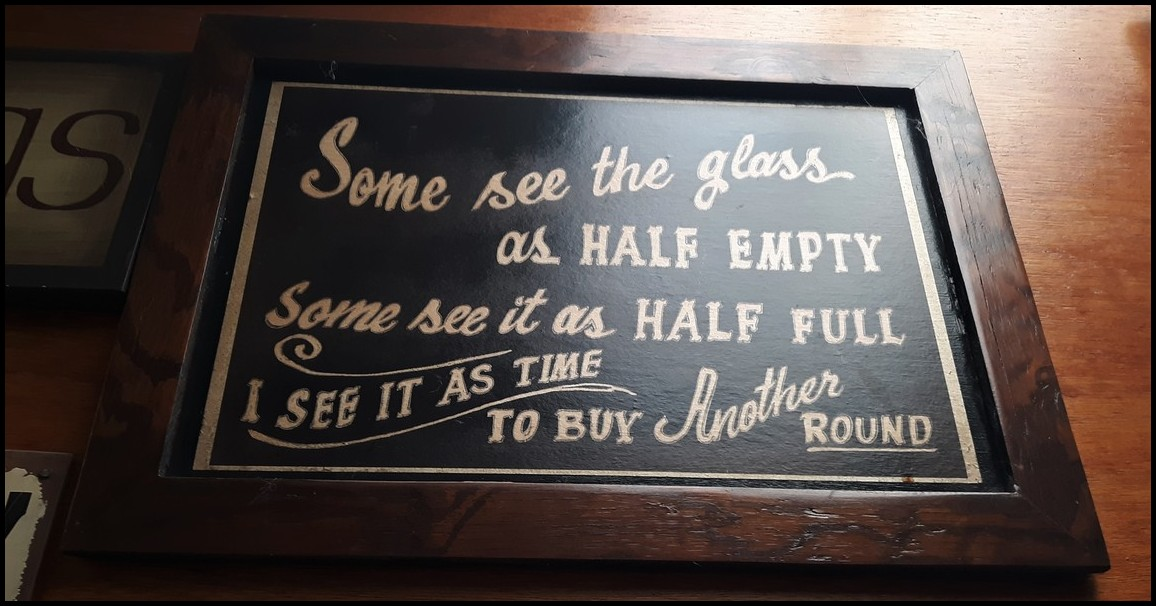 Some see the glass
as HALF EMPTY
Some see it as HALF FULL
I SEE IT AS TIME
TO BUY Another
ROUND